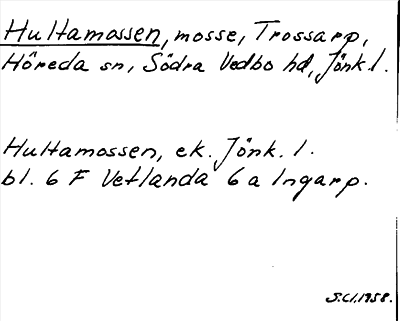 Hultamossen, mosse, Trossarp,
Höreda sn, Södra Vedbo hd, Jönk.l.
Hultamossen, ek. Jönk. l.
bl. 6 F Vetlanda 6 a Ingarp.
S.Cl.1958.